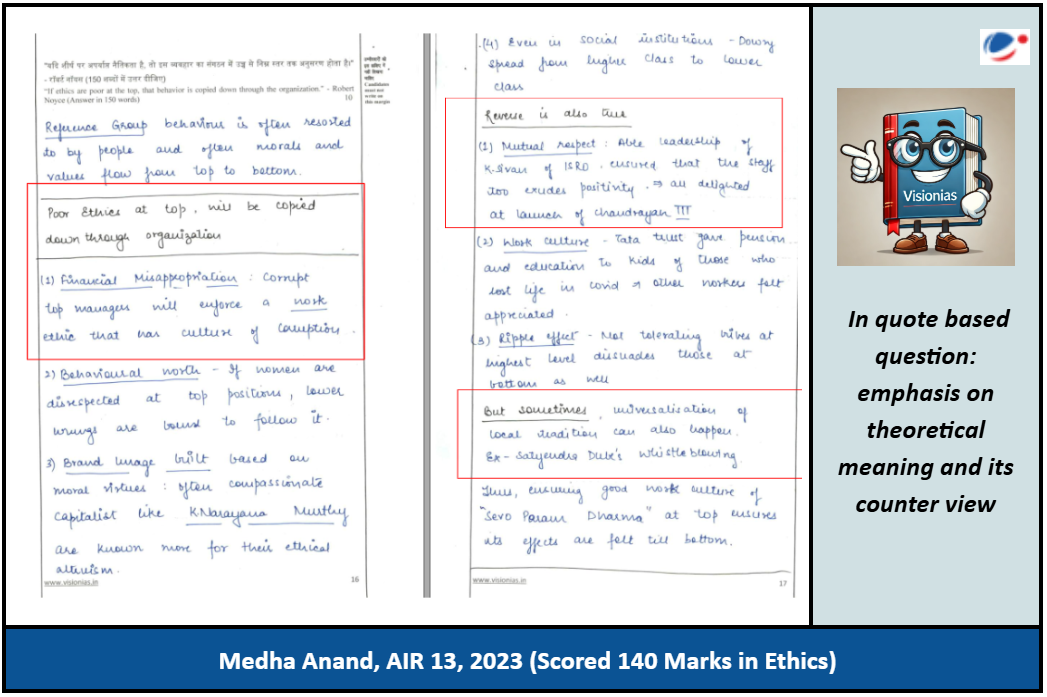 "यदि शीर्ष पर अपर्याप्त नैतिकता है, तो उस व्यवहार का संगठन में उच्च से निम्न स्तर तक अनुसरण होता है।"
- रॉबर्ट नॉयस (150 शब्दों में उत्तर दीजिए)
"If ethics are poor at the top, that behavior is copied down through the organization." - Robert
Noyce (Answer in 150 words)
10
Candidates
must not
write on
this margin
Reference Group behaviour is often resorted
to by people and often morals and
values flow from top to bottom.
Poor Ethics at top, will be copied
down through organization
(1) Financial Misappropriation : Corrupt
top managers will enforce a work
ethic that has culture of corruption.
2) Behavioural worth - If women are
disrespected at top positions, lower
wrungs are bound to follow it.
3) Brand Image built based on
moral virtues : often compassionate
capitalist like K.Narayana Murthy
are known more for their ethical
altruism.
www.visionias.in
16
(4) Even in social institutions - Dowry
spread from higher class to lower
class
Reverse is also true
(1) Mutual respect : Able leadership of
K.Sivan of ISRO, ensured that the staff
too exudes positivity. ⇒ all delighted
at launch of Chandrayan III
(2) Work culture - Tata trust gave pension
and education to kids of those who
lost life in covid ⇒ other workers felt
appreciated.
(3) Ripple effect - Not tolerating bribes at
highest level dissuades those at
bottom as well
But sometimes, universalisation of
local tradition can also happen.
Ex- Satyendra Dube's whistle blowing
Thus, ensuring good work culture of
"Sevo Param Dharma" at top ensures
its effects are felt till bottom.
www.visionias.in
17
Visionias
In quote based
question:
emphasis on
theoretical
meaning and its
counter view
Medha Anand, AIR 13, 2023 (Scored 140 Marks in Ethics)